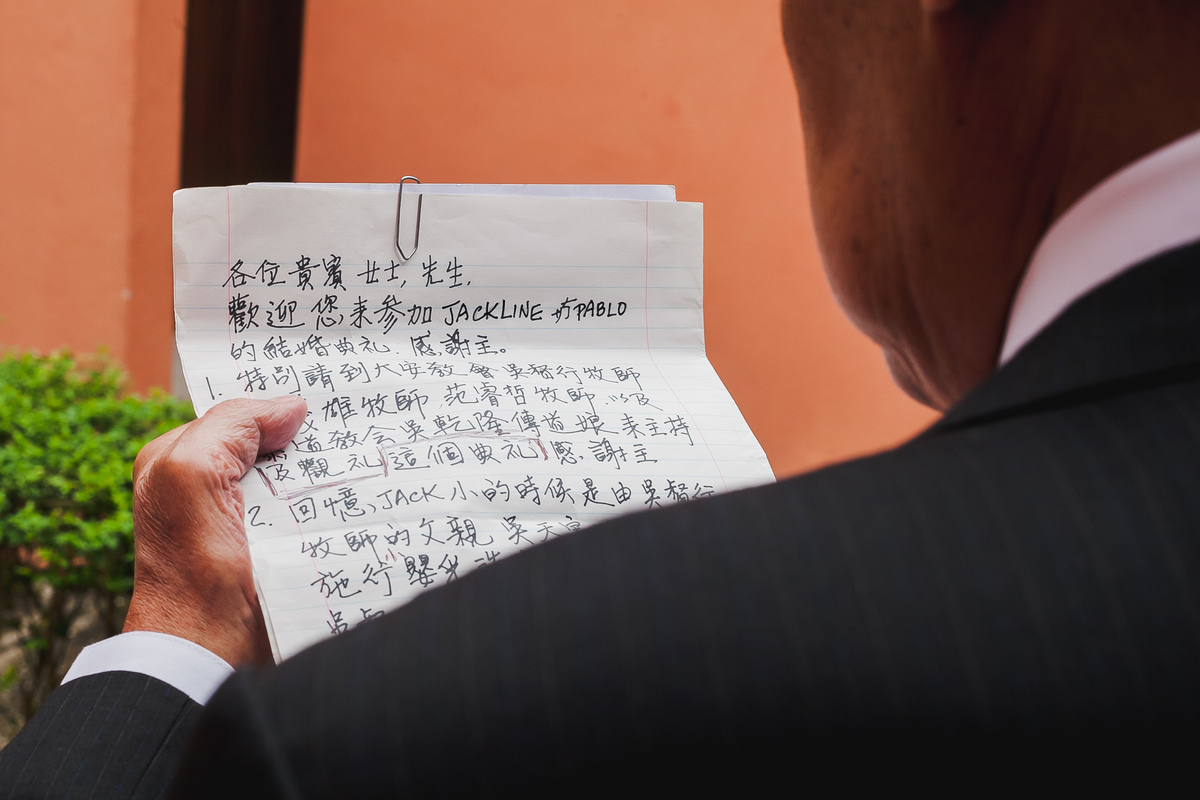 各位貴賓 女士, 先生,
歡迎 您來參加 JACKLINE 与PABLO
的結婚典礼. 感謝主。
1. 特別請到大安教會吳 行牧師
雄牧師 范睿哲牧師 以及
道教會吳乾隆傳道娘 來主持
及觀礼 這個典礼 感謝主
2. 回憶, JACK 小的時候是由吳 行
牧師的父親 吳天
施行嬰兒洗
吳